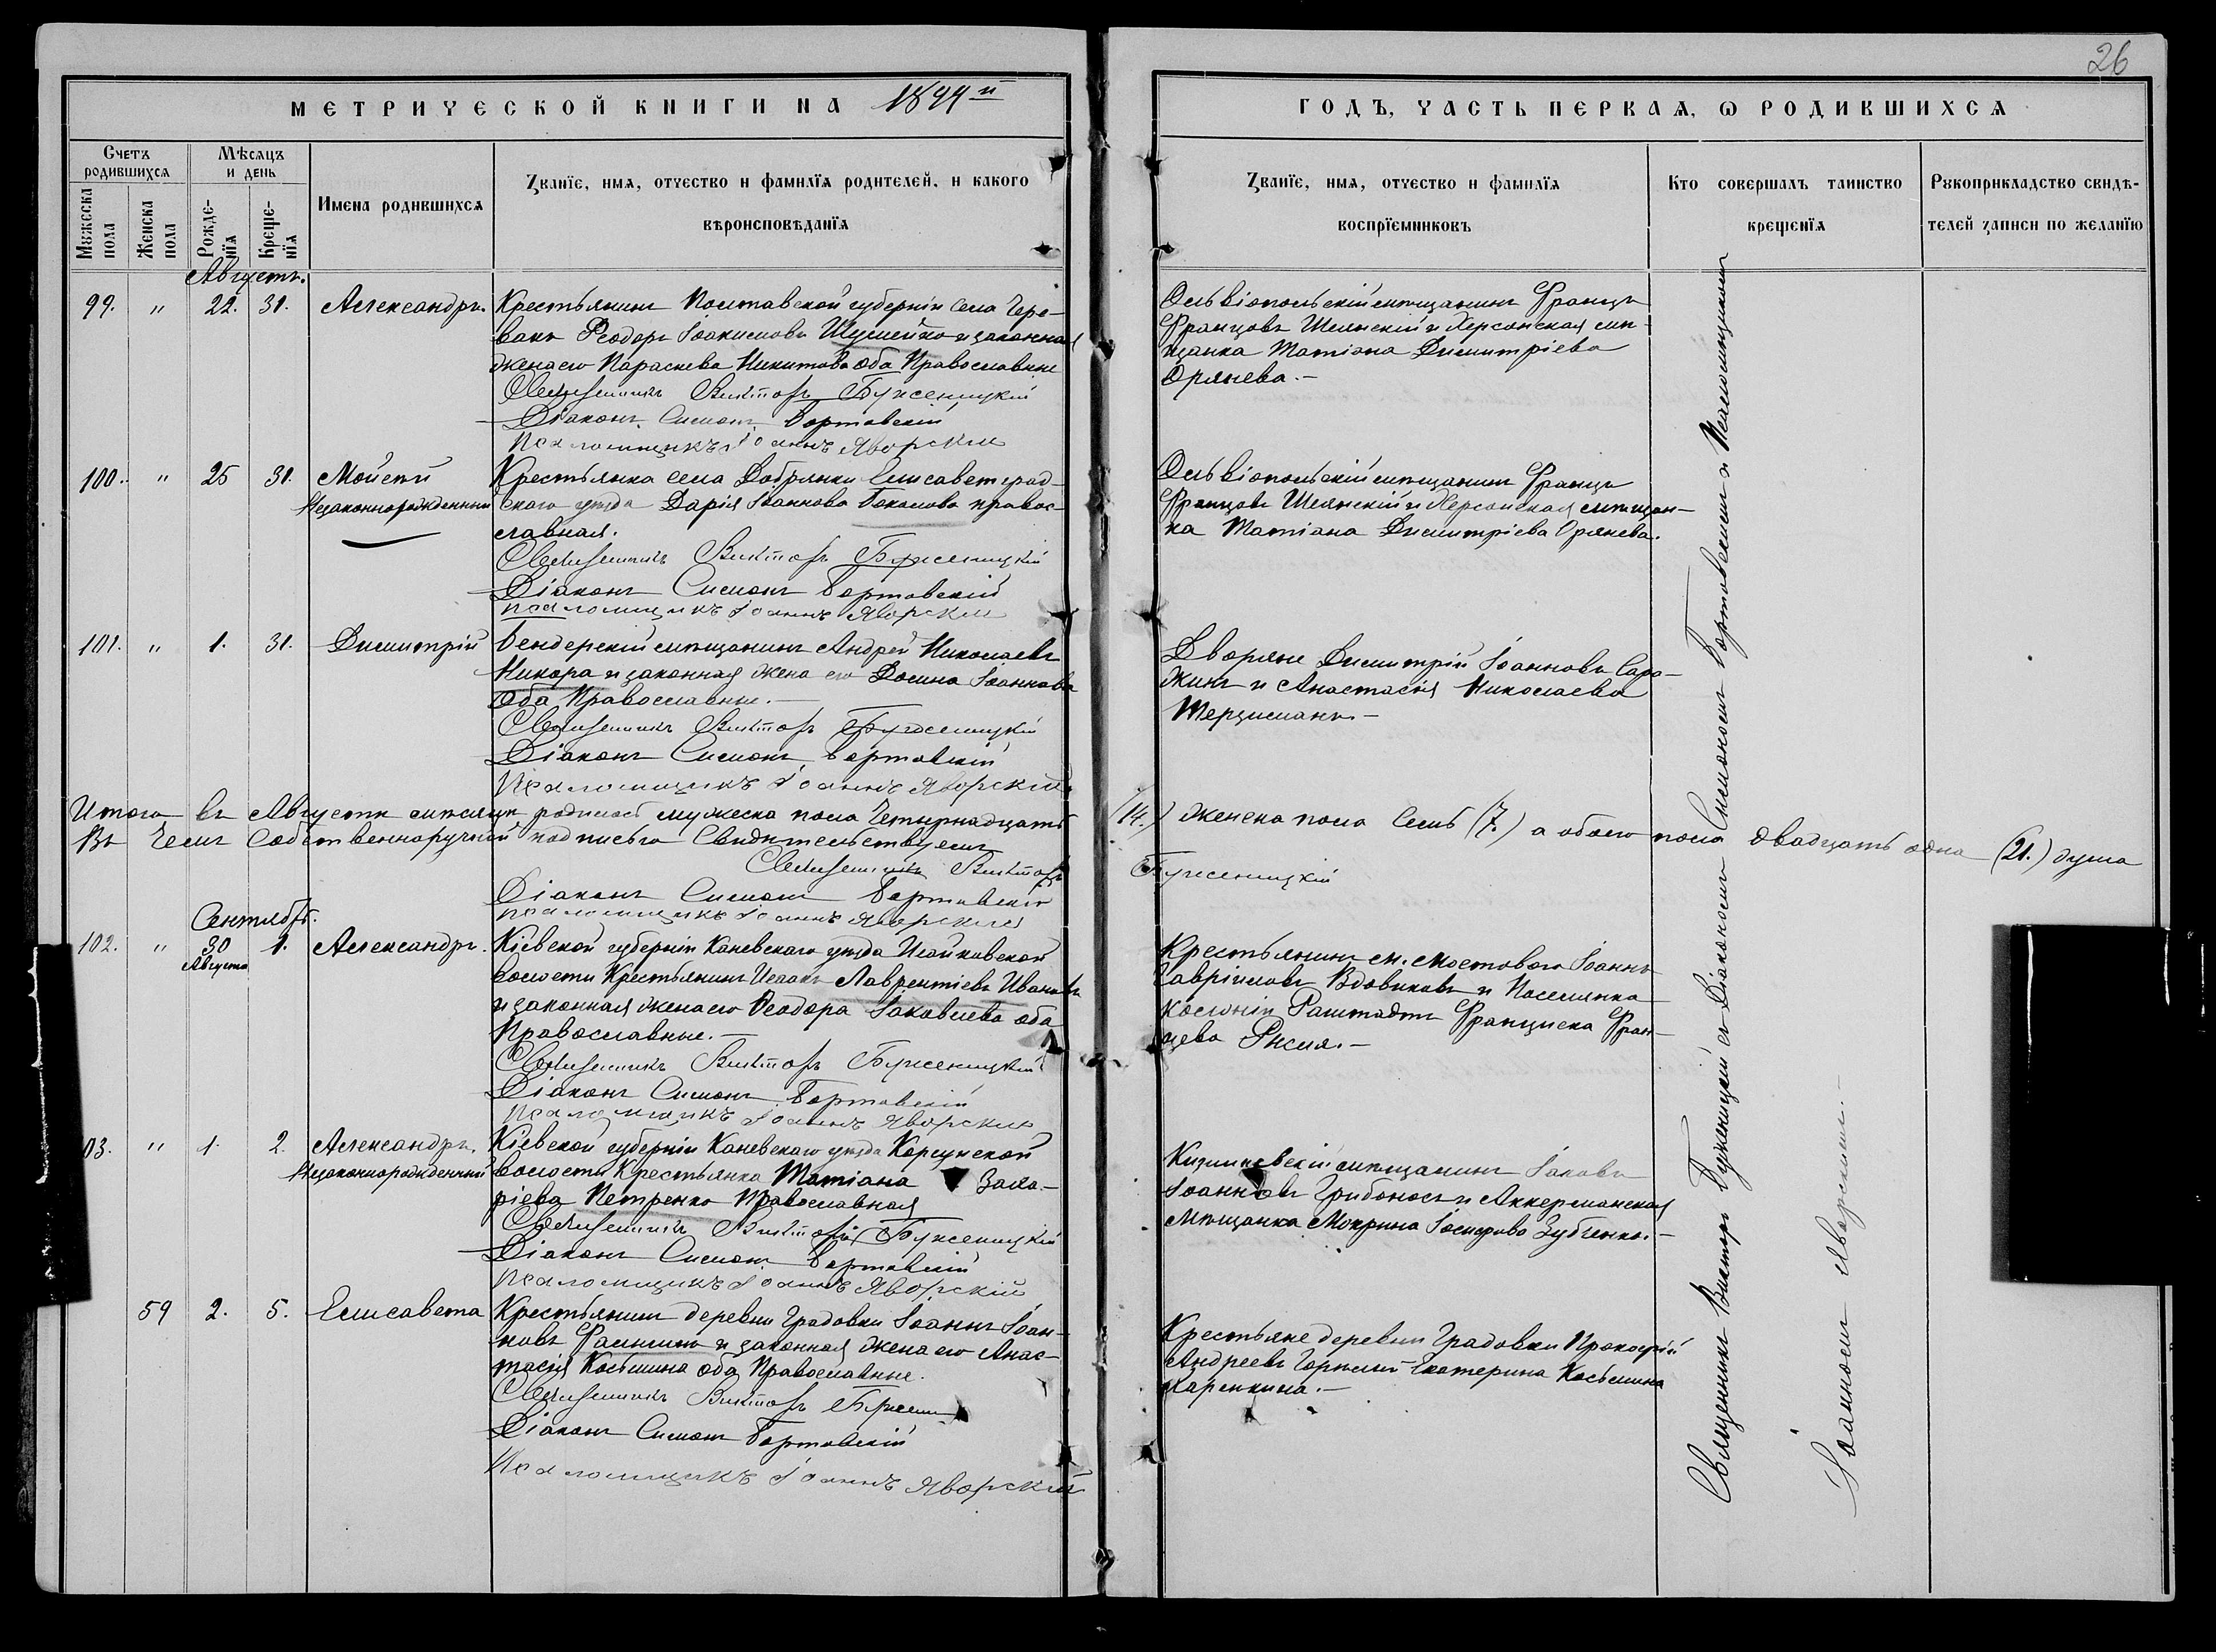 26
МЕТРИЧЕСКОЙ КНИГИ НА 1894й
ГОДЪ, ЧАСТЬ ПЕРВАЯ, Ѡ РОДИВШИХСЯ
Счетъ родившихся
Мѣсяцъ и день
Мужеска пола
Женска пола
Рожде-нія
Креще-нія
Имена родившихся
Званїе, имя, отчество и фамилїя родителей, и какого
вѣроисповѣданїя
Званїе, имя, отчество и фамилїя
воспрїемниковъ
Кто совершалъ таинство
крещенїя
Рукоприкладство свидѣ-
телей записи по желанїю
Августъ.
99. " 22. 31. Александръ. Крестьянинъ Полтавской губерніи села Чере-
вакъ Ѳеодоръ Іоакимовъ Шумейко и законная
жена его Параскева Никитова оба Православные
Священникъ Викторъ Буженицкій
Діаконъ Симонъ Бортовскій
Псаломщикъ Іоаннъ Яворскій
Ольвіопольскій мѣщанинъ Францъ
Францовъ Шелнскій и Херсонская мѣ-
щанка Татіана Димитріева
Орлнева.-
100. " 25 31. Мойсей
Незаконнорожденный
Крестьянка села Добрянки Елисаветград-
скаго уѣзда Дарія Іоаннова Боколова правос-
славная.
Священникъ Викторъ Буженицкій
Діаконъ Симонъ Бортовскій
Псаломщикъ Іоаннъ Яворскій
Ольвіопольскій мѣщанинъ Францъ
Францовъ Шелнскій и Херсонская мѣщан-
ка Татіана Димитріева Орлнева.
101. " 1. 31. Димитрій Бендерскій мѣщанинъ Андрей Николаевъ
Никора и законная жена его Домна Іоаннова
Оба Православные.-
Священникъ Викторъ Буженицкій
Діаконъ Симонъ Бортовскій
Псаломщикъ Іоаннъ Яворскій
Дворяне Димитрій Іоанновъ Сара-
жинъ и Анастасія Николаева
Терциманъ.-
Итого въ Августѣ мѣсяцѣ родилось мужеска пола Четырнадцать (14.) женска пола Семь (7.) а обоего пола двадцать одна (21.) душа
Въ Чемъ Собственноручной подписью Свидѣтельствуемъ
Священникъ Викторъ Буженицкій
Діаконъ Симонъ Бортовскій
Псаломщикъ Іоаннъ Яворскій
Сентябрь.
102. " 30 Августа 1. Александръ. Кіевской губерніи Каневскаго уѣзда
волости Крестьянинъ Исаакъ Лаврентіевъ Ивановъ
и законная жена его Ѳеодора Іаковлева оба
Православные.-
Священникъ Викторъ Буженицкій
Діаконъ Симонъ Бортовскій
Псаломщикъ Іоаннъ Яворскій
Крестьянинъ м. Мостоваго Іоаннъ
Гавріиловъ Вдовиковъ и Поселянка
Колоніи Раштадтъ Франциска Фран-
цева
03. " 1. 2. Александръ.
Незаконнорожденный
Кіевской губерніи Каневскаго уѣзда Корсунской
волости Крестьянка Татіана Заха-
ріева Петренко Православная
Священникъ Викторъ Буженицкій
Діаконъ Симонъ Бортовскій
Псаломщикъ Іоаннъ Яворскій
мѣщанинъ Іаковъ
Іоанновъ Грибоносъ и Аккерманская
Мѣщанка Мокрина Іосифова Зубченко.-
59 2. 5. Елисавета Крестьянинъ деревни Градовки Іоаннъ Іоан-
новъ и законная жена его Анас-
тасія Косьмина оба Православные.
Священникъ Викторъ
Діаконъ Симонъ Бортовскій
Псаломщикъ Іоаннъ Яворскій
Крестьяне деревни Градовки Прокофій
Андреевъ Горпный Екатерина Косьмина
Карпкина.-
Священникъ Викторъ Буженицкій съ Діакономъ Симономъ Бортовскимъ и Псаломщикомъ
Іоанномъ Яворскимъ.-